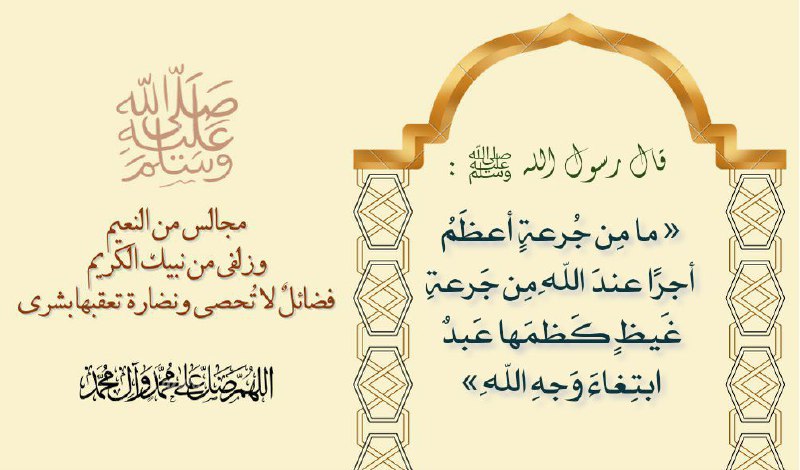 قال رسول الله ﷺ :
« ما مِن جُرعةٍ أعظَمُ
أجرًا عندَ اللّٰهِ مِن جَرعةِ
غَيظٍ كَظمَها عَبدٌ
ابتِغاءَ وَجهِ اللّٰهِ »
صَلَّى اللّٰه
عَلَيْهِ
وَسَلَّم
مجالس من النعيم
وزلفى من نبيك الكريم
فضائلٌ لا تُحصى ونضارة تعقبها بشرى
اللهُمَّ صَلِّ عَلىٰ مُحَمَّد وَآلِ مُحَمَّد